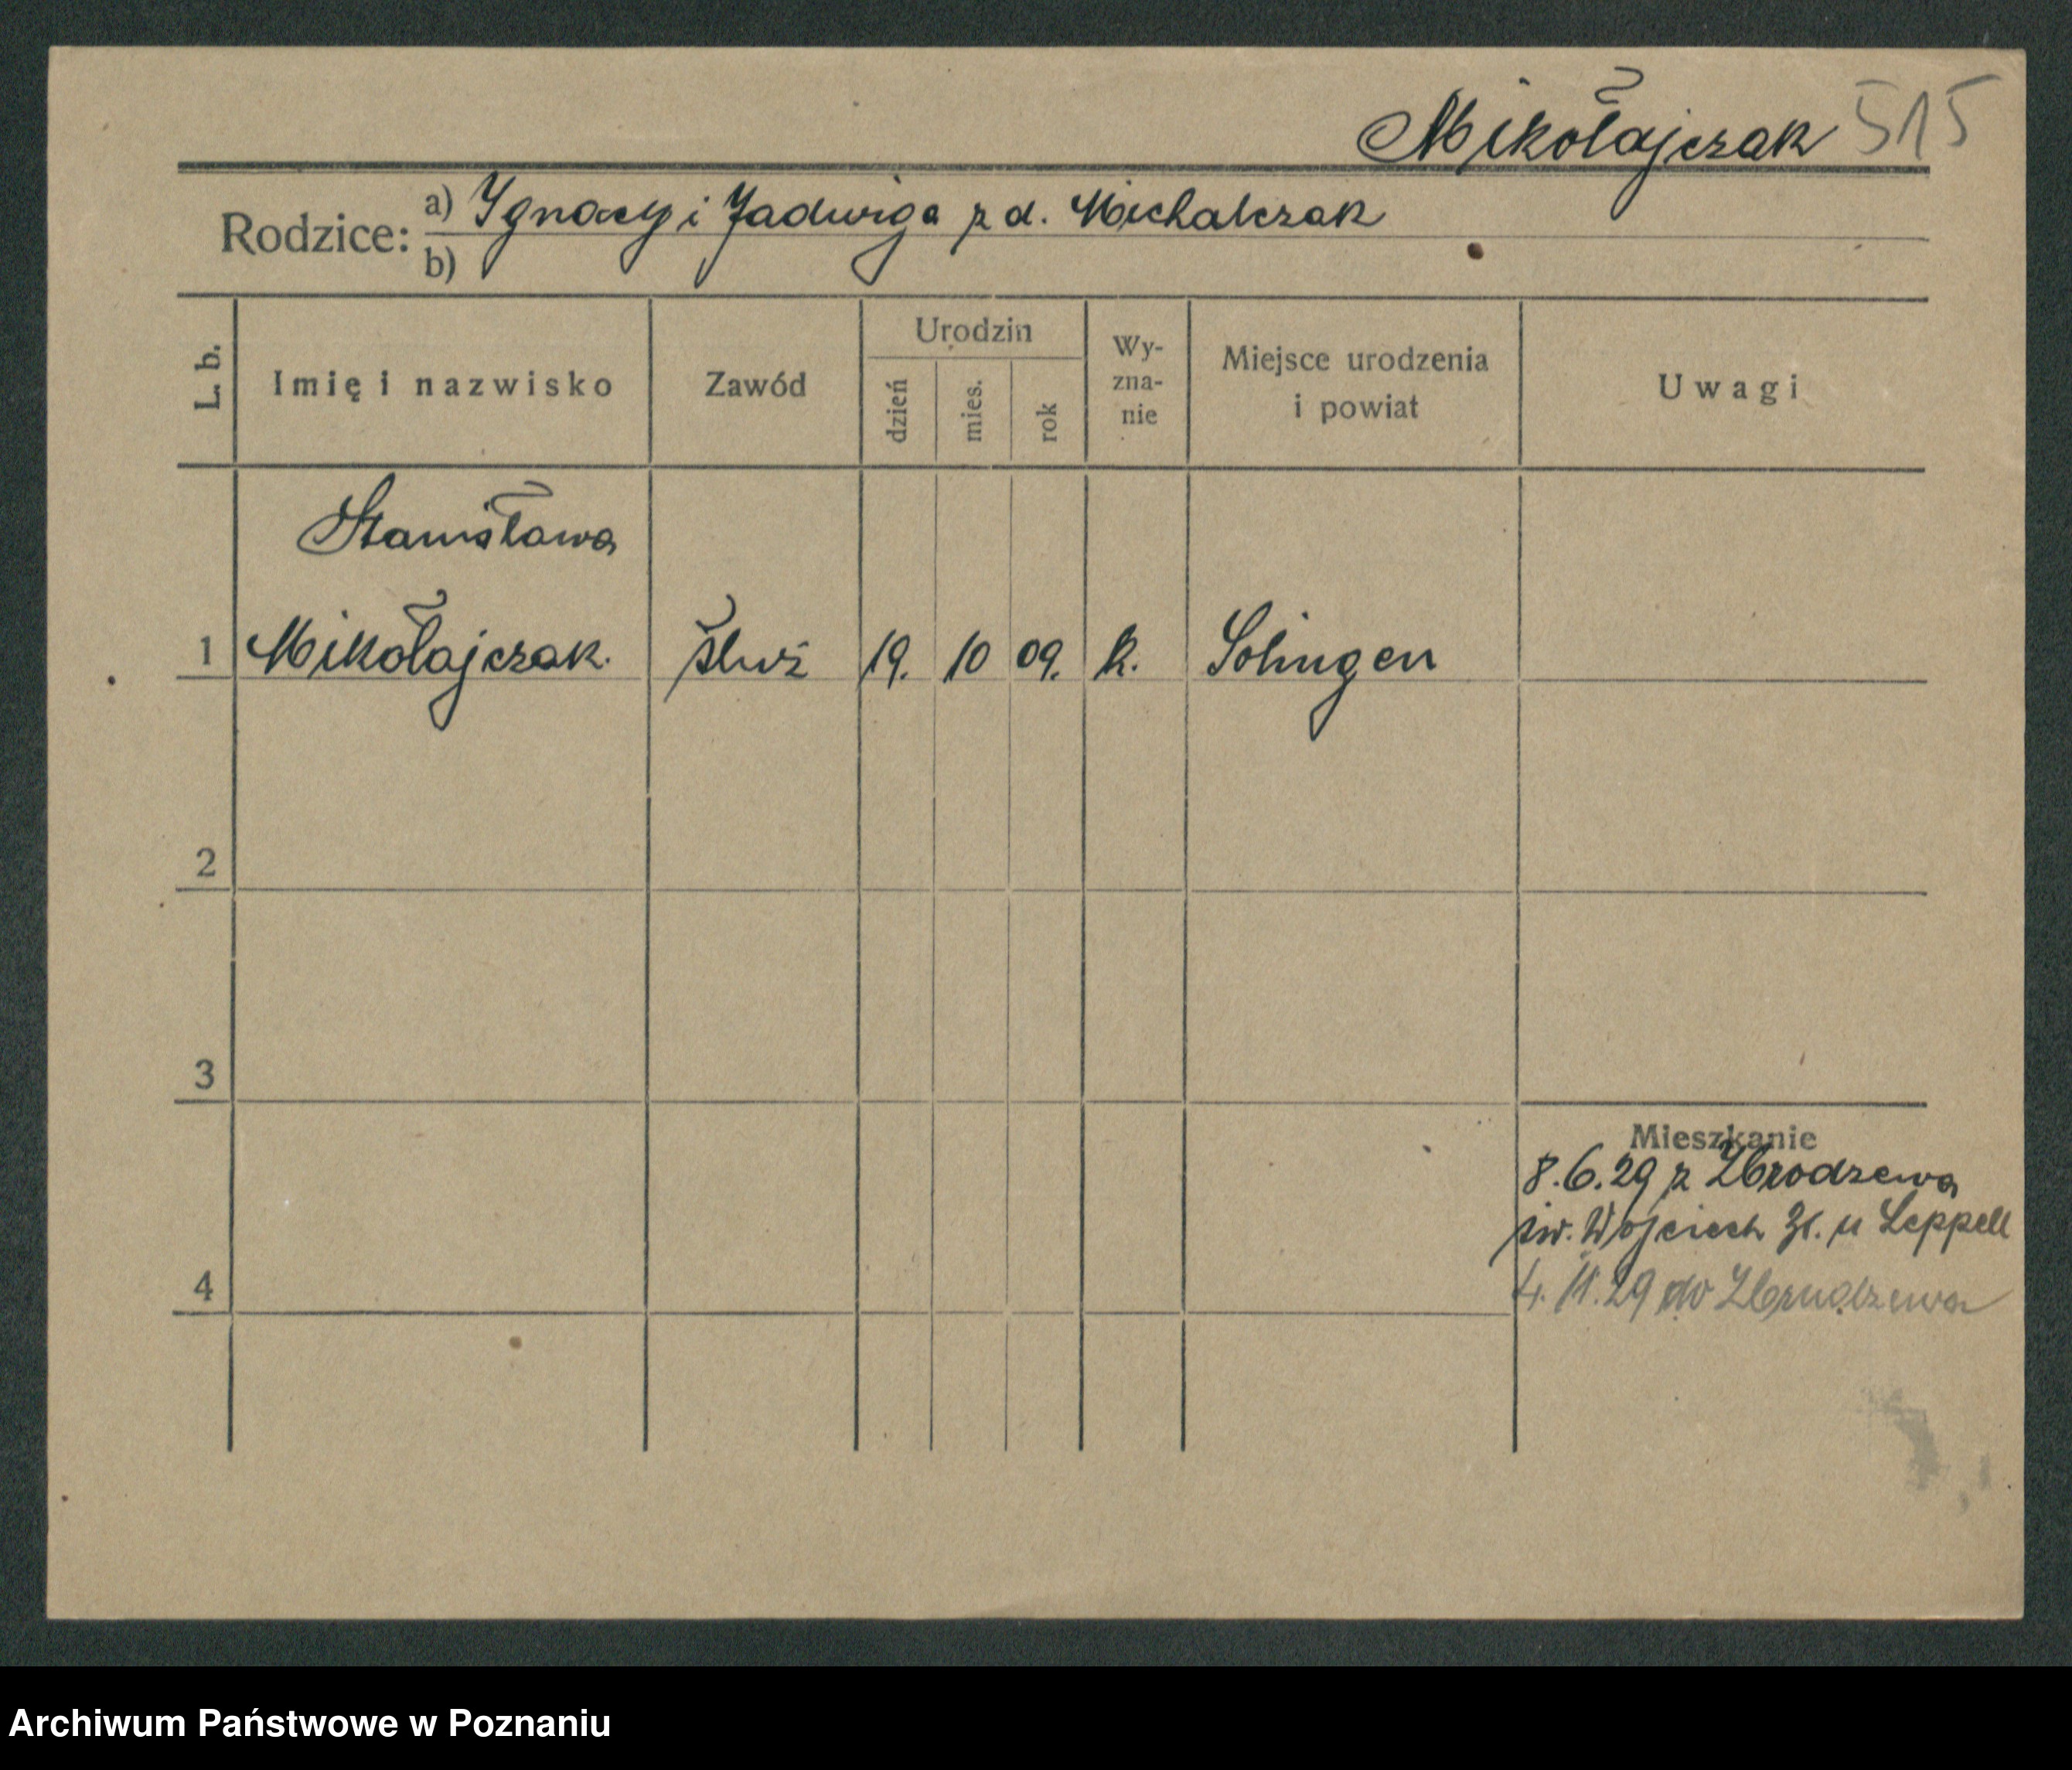 Mikołajczak 515
Rodzice: a) Ignacy i Jadwiga z d. Michalczak
b)
L. b. Imię i nazwisko Zawód Urodzin dzień mies. rok Wyznanie Miejsce urodzenia i powiat Uwagi
Stanisława
1 Mikołajczak. służ 19. 10 09. k. Solingen
2
3
Mieszkanie
8.6.29 z Zbrodzewa
św. Wojciech 31. u Leppelt
4 4.11.29 do Zbrudzewa
Archiwum Państwowe w Poznaniu